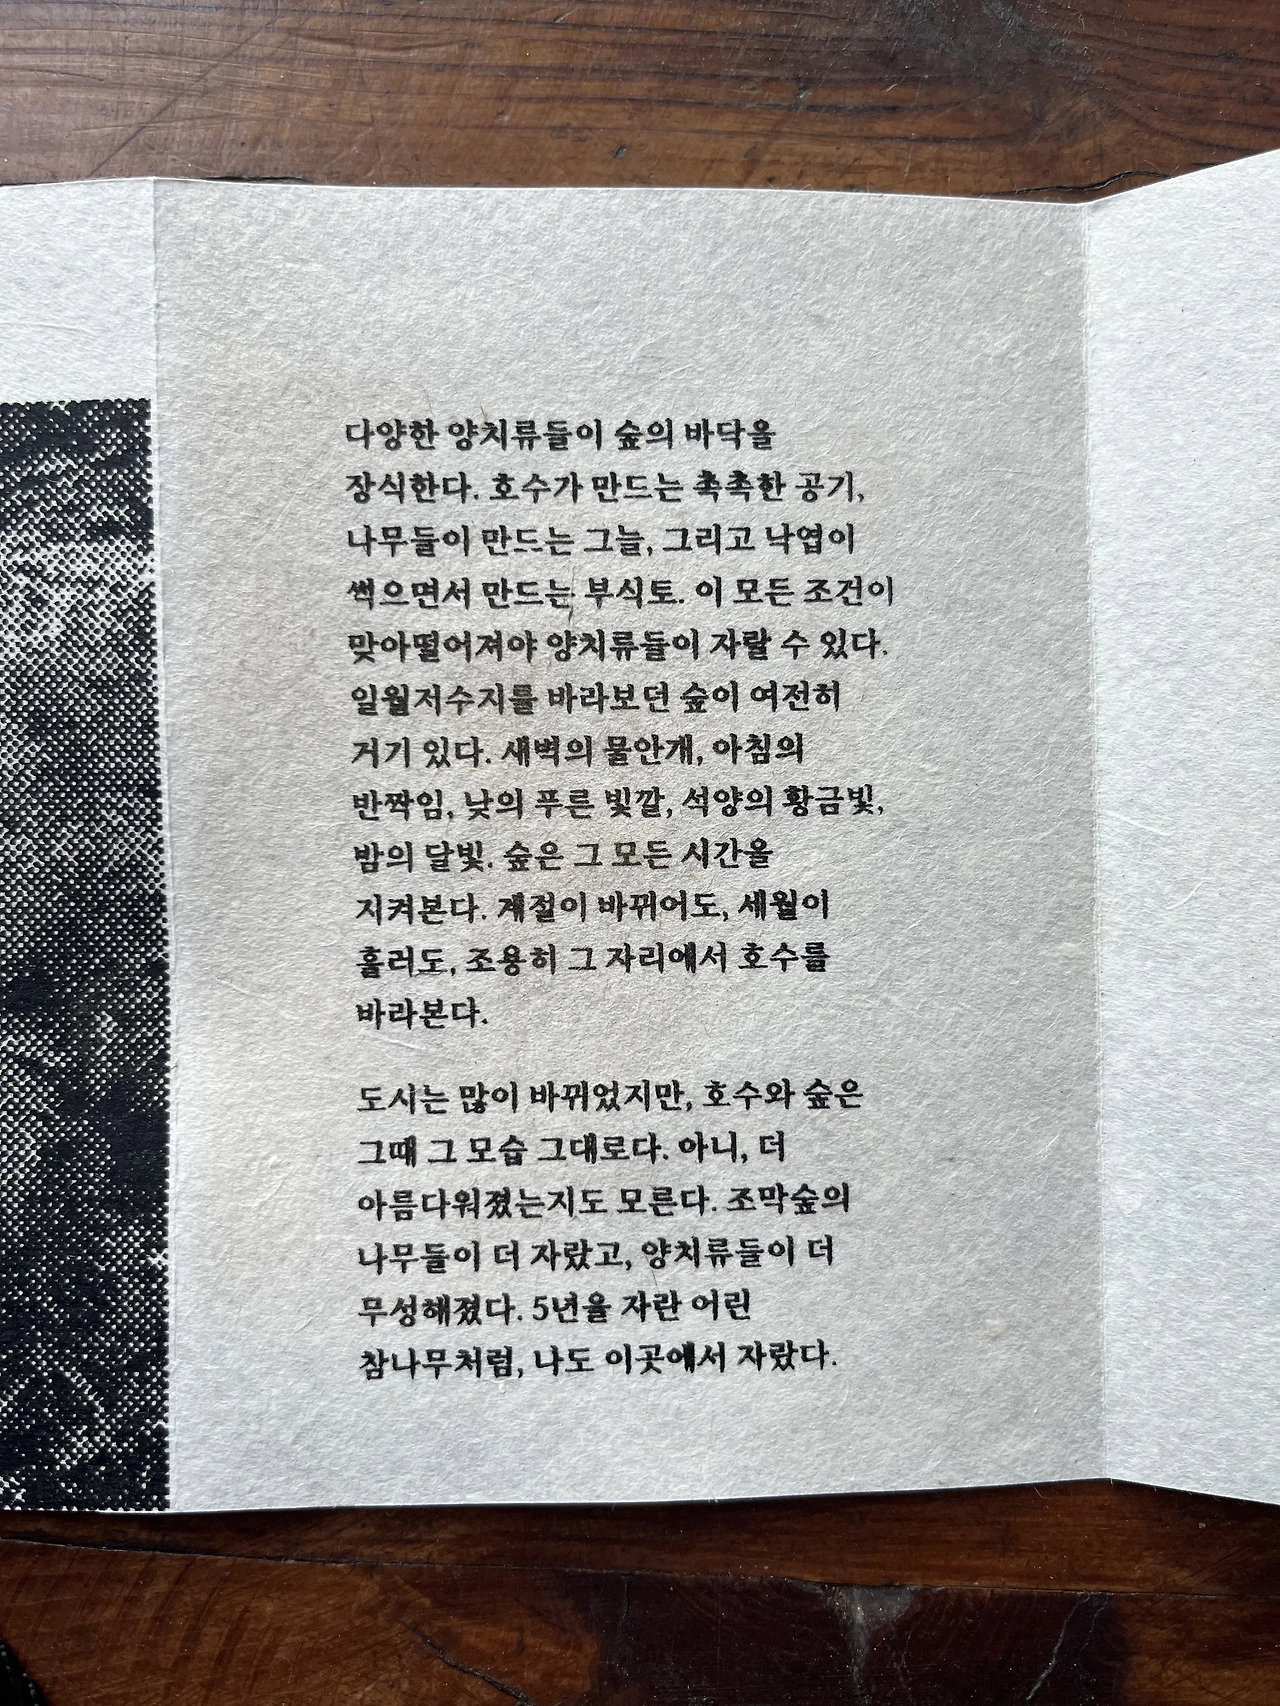 다양한 양치류들이 숲의 바닥을
장식한다. 호수가 만드는 촉촉한 공기,
나무들이 만드는 그늘, 그리고 낙엽이
썩으면서 만드는 부식토. 이 모든 조건이
맞아떨어져야 양치류들이 자랄 수 있다.
일월저수지를 바라보던 숲이 여전히
거기 있다. 새벽의 물안개, 아침의
반짝임, 낮의 푸른 빛깔, 석양의 황금빛,
밤의 달빛. 숲은 그 모든 시간을
지켜본다. 계절이 바뀌어도, 세월이
흘러도, 조용히 그 자리에서 호수를
바라본다.

도시는 많이 바뀌었지만, 호수와 숲은
그때 그 모습 그대로다. 아니, 더
아름다워졌는지도 모른다. 조막숲의
나무들이 더 자랐고, 양치류들이 더
무성해졌다. 5년을 자란 어린
참나무처럼, 나도 이곳에서 자랐다.